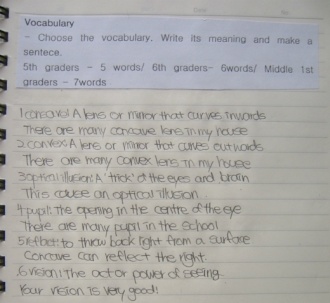 Vocabulary
- Choose the vocabulary. Write its meaning and make a
sentece.
5th graders - 5 words/ 6th graders- 6words/ Middle 1st
graders - 7words
1.concave: A lens or mirror that curves inwards
There are many concave lens in my house
2.convex: A lens or mirror that curves outwards
There are many convex lens in my house
3.optical illusion: A 'trick' of the eyes and brain
This cause an optical illusion
4.pupil: The opening in the centre of the eye
There are many pupil in the school
5.reflect: to throw back light from a surface
Concave can reflect the right.
6.vision: The act or power of seeing.
Your vision is very good!